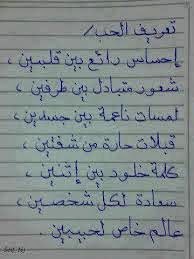 تعريف الحب /
إحساس رائع بين قلبين ،
شعور متبادل بين طرفين ،
لمسات ناعمة بين جسدين ،
قبلات حارة من شفتين ،
كلمة خلود بين إثنين ،
سعادة لكل شخصين ،
عالم خاص لحبيبين .